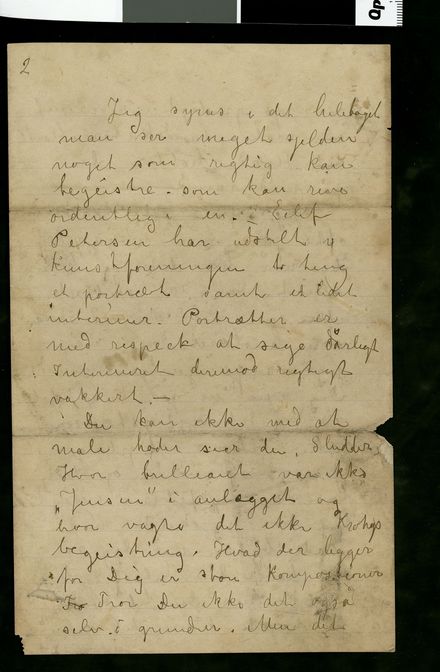 2
Jeg synes i det heletaget
man ser meget sjelden
noget som rigtig kan
begeistre. som kan rive
ordentlig i en. Eilif
Petersen har udstilt i
kunstforeningen to ting
et portræt samt et lidet
interieur. Portrættet er
med respeck at sige Dårligt
Interieuret derimod rigtigt
vakkert. —
Du kan ikke med at
male hoder sier du, Sludder,
Hvor brilleant var ikke
"Jensen" i anlægget og
hvor vagte det ikke Krohgs
begeistring. Hvad der ligger
for Dig er store Kompositioner
Tror Du ikke det også
selv. i grunden. Men det